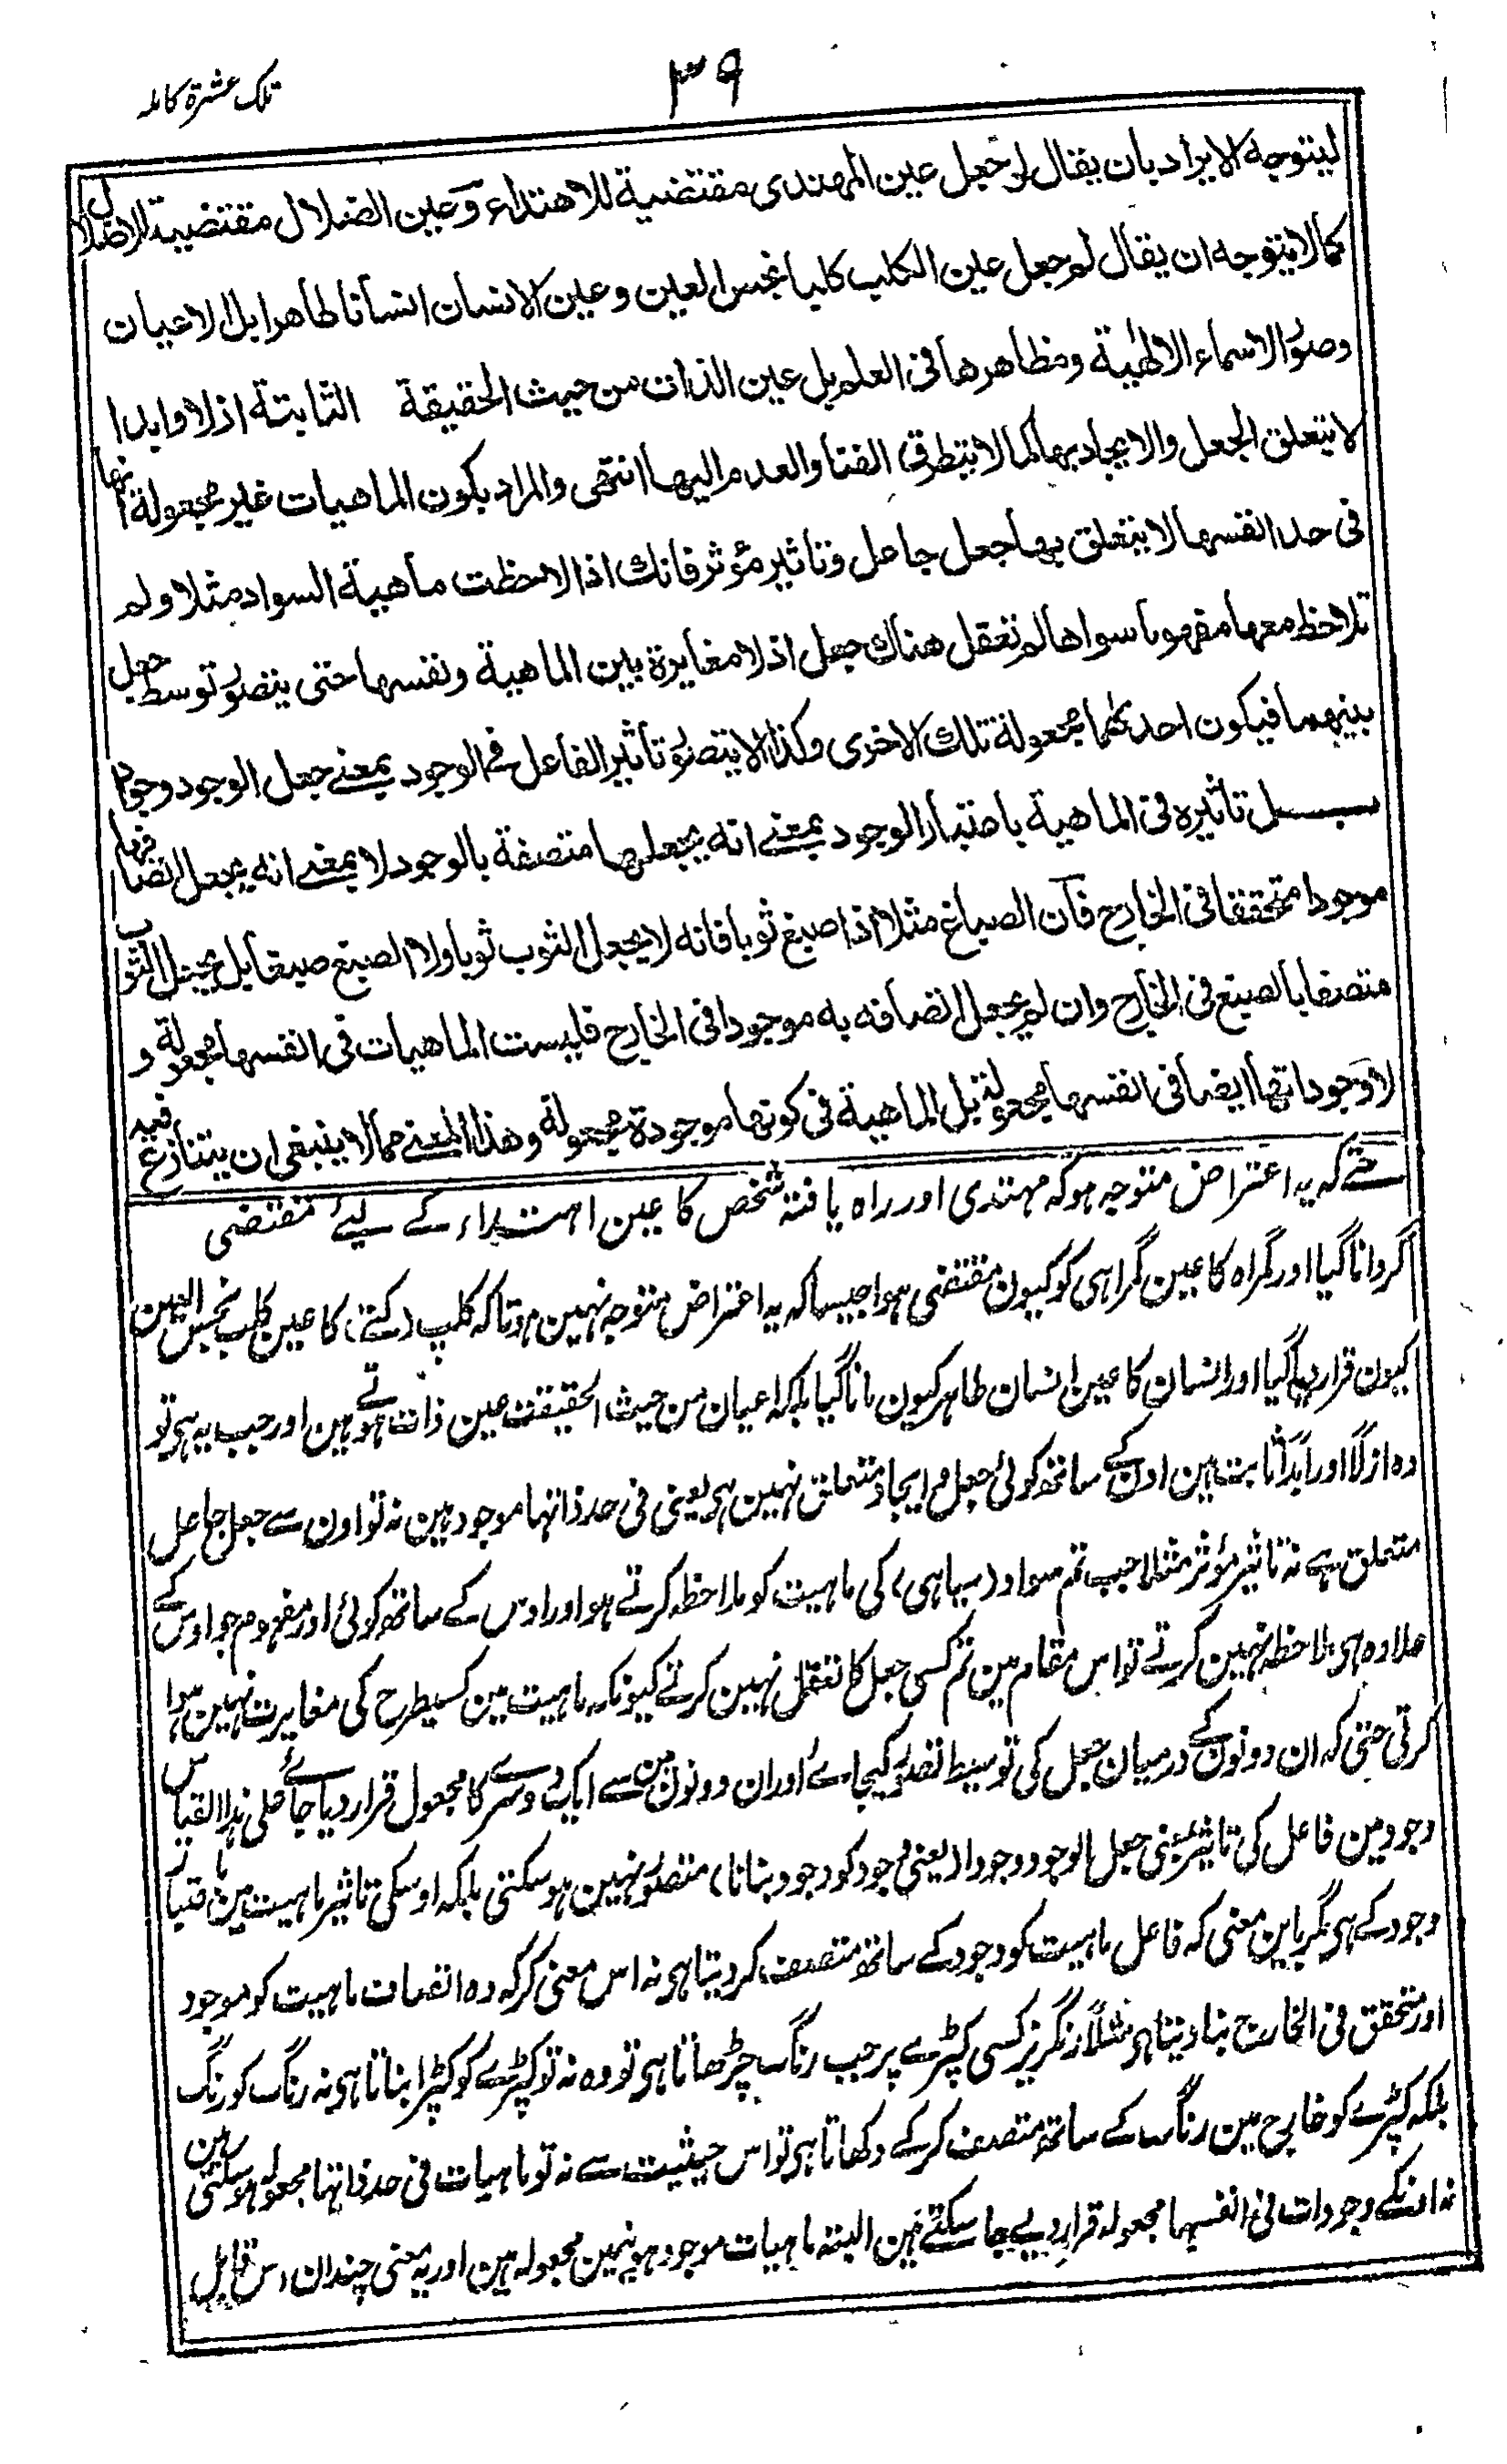 تلک عشرة کامله
۳۹
ليتوجه الايراد بان يقال لم جعل عين المهتدى مقتضية للاهتداء وعين الضلال مقتضية للاضلال
كما لا يتوجه ان يقال لم جعل عين الكلب كلبا نجس العين وعين الانسان انسانا طاهرا بل الاعيان
وصور الاسماء الالهية ومظاهرها فى العلم بل عين الذات من حيث الحقيقة الثابتة ازلا وابدا
لا يتعلق الجعل والايجاد بها كما لا يتطرق الفنا والعدم اليها انتهى والمراد بكون الماهيات غير مجعولة انها
فى حد انفسها لا يتعلق بها جعل جاعل وتاثير مؤثر فانك اذا لاحظت ماهية السواد مثلا ولم
تلاحظ معها مفهوما سواها لم تعقل هناك جعل اذ لا مغايرة بين الماهية ونفسها حتى يتصور توسط جعل
بينهما فيكون احدىهما مجعولة تلك الاخرى وكذا لا يتصور تأثير الفاعل فى الوجود بمعنے جعل الوجود وجودا
بل تاثيره فى الماهية باعتبار الوجود بمعنے انه يجعلها متصفة بالوجود لا بمعنے انه يجعل اتصافها
موجودا متحققا فى الخارج فان الصباغ مثلا اذا صبغ ثوبا فانه لا يجعل الثوب ثوبا ولا الصبغ صبغا بل يجعل الثوب
متصفا بالصبغ فى الخارج وان لم يجعل اتصافه به موجودا فى الخارج فليست الماهيات فى انفسها مجعولة و
لا وجوداتها ايضا فى انفسها مجعولة بل الماهية فى كونها موجودة مجعولة وهذا المعنے مما لا ينبغى ان يتنازع فيه
حتے کہ یہ اعتراض متوجہ ہو کہ مہتدی اور راہ یافتہ شخص کا عین اہتداء کے لیئے مقتضی
گردانا گیا اور گمراہ کا عین گمراہی کو کیون مقتضی ہوا جیسا کہ یہ اعتراض متوجہ نہین ہوتا کہ کلب (کتے) کا عین کلب نجس العین
کیون قرار دیا گیا اور انسان کا عین انسان طاہر کیون مانا گیا بلکہ اعیان من حیث الحقیقت عین ذات ہوتے ہین اور جب یہ ہی تو
وہ ازلاً اور ابداً ثابت ہین اون کے ساتھ کوئی جعل و ایجاد متعلق نہین ہی یعنی فی حد ذاتہا موجود ہین نہ تو اون سے جعل جاعل
متعلق ہے نہ تاثیر مؤثر مثلا جب تم سواد (سیاہی) کی ماہیت کو ملاحظہ کرتے ہو اور اوس کے ساتھ کوئی اور مفہوم جو اوس کے
علاوہ ہی ملاحظہ نہین کرتے تو اس مقام مین تم کسی جعل کا تعقل نہین کرتے کیونکہ ماہیت مین کسیطرح کی مغایرت نہین ہوا
کرتی حتی کہ ان دونون کے درمیان جعل کی توسیط تصور کیجاے اور ان دونون مین سے ایک دوسرے کا مجعول قرار دیا جاے علی ہذا القیاس
وجود مین فاعل کی تاثیر بمعنی جعل الوجود وجودا (یعنی وجود کو وجود بنانا) متصور نہین ہو سکتی بلکہ اوسکی تاثیر ماہیت مین باعتبار
وجود کے ہی مگر باین معنی کہ فاعل ماہیت کو وجود کے ساتھ متصف کر دیتا ہی نہ اس معنی کر کہ وہ اتصاف ماہیت کو موجود
اور متحقق فی الخارج بنا دیتا ہی مثلاً رنگریز کسی کپڑے پر جب رنگ چڑھاتا ہی تو وہ نہ تو کپڑے کو کپڑا بناتا ہی نہ رنگ کو رنگ
بلکہ کپڑے کو خارج مین رنگ کے ساتھ متصف کر کے دکھاتا ہی تو اس حیثیت سے نہ تو ماہیات فی حد ذاتہا مجعولہ ہو سکتی ہین
نہ اونکے وجودات فی انفسہا مجعولہ قرار دیے جا سکتے ہین البتہ ماہیات موجود ہونیمین مجعولہ ہین اور یہ معنی چندان اس قابل